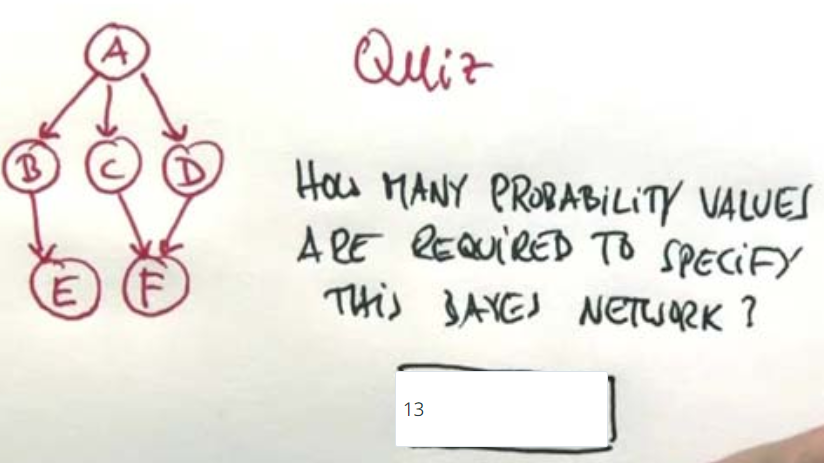 A
Quiz
B C D
HOW MANY PROBABILITY VALUES
ARE REQUIRED TO SPECIFY
E F
THIS BAYES NETWORK?
13